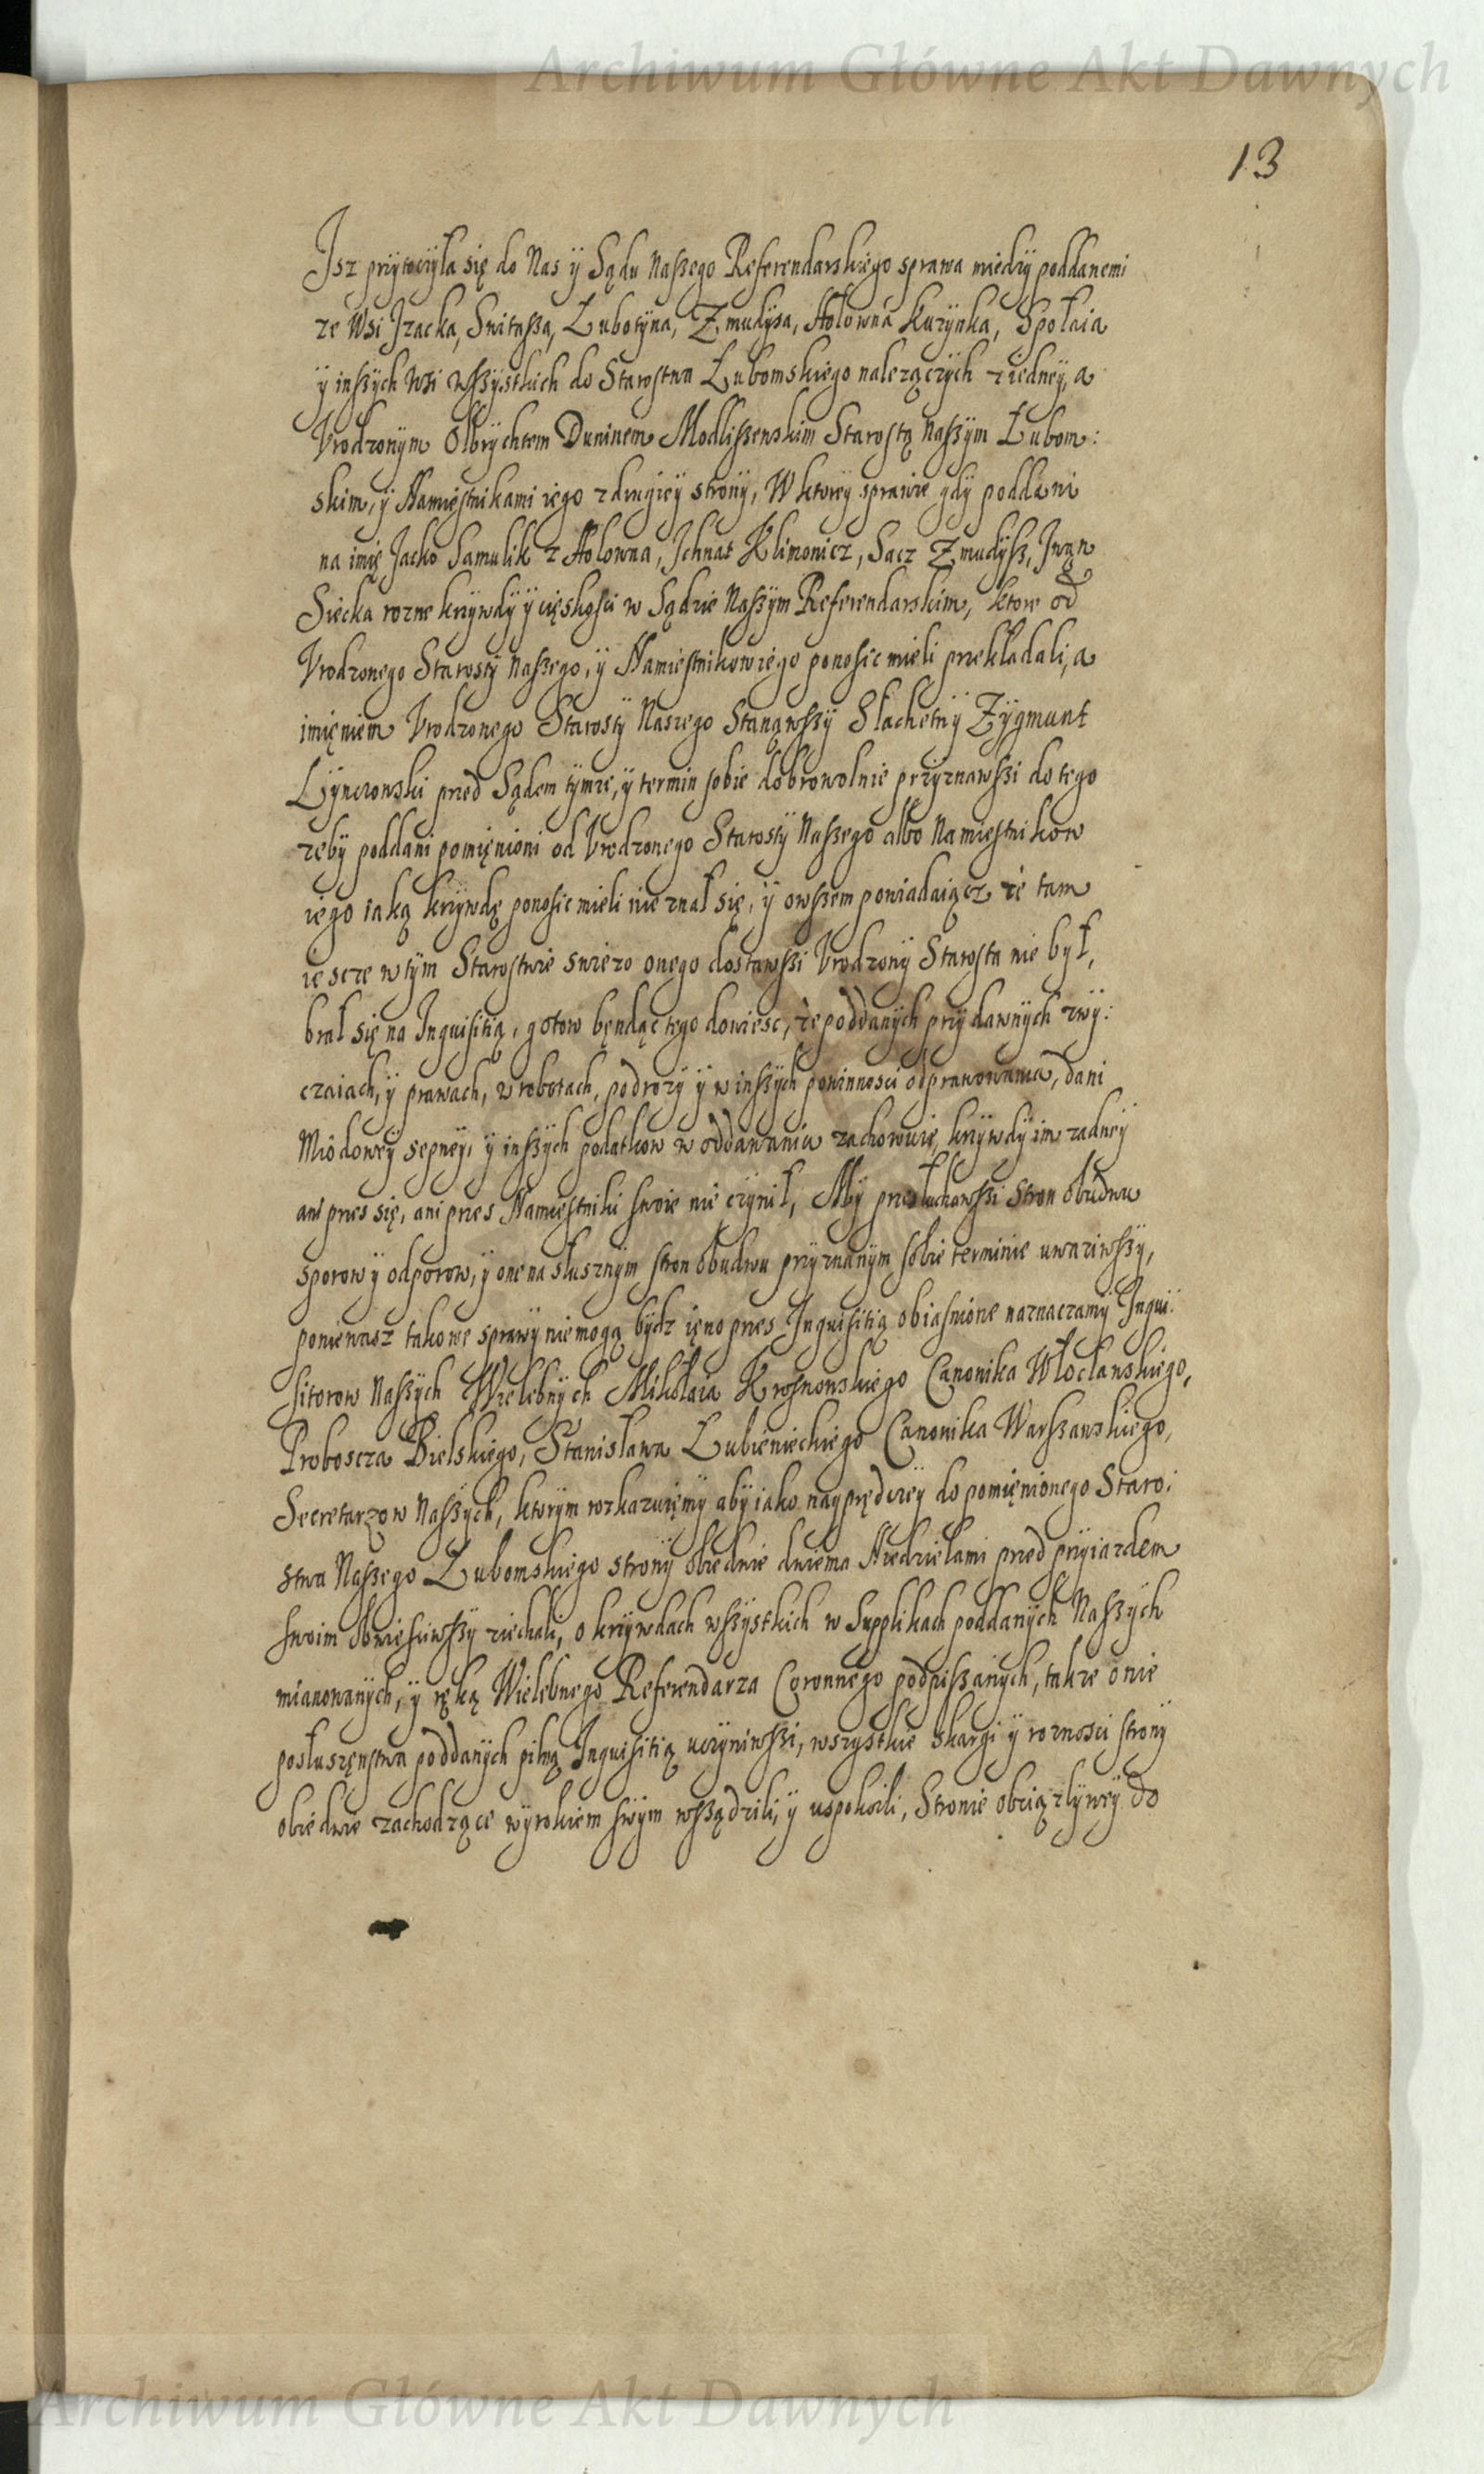 Archiwum Główne Akt Dawnych
13
Isz przytoczyła się do Nas y Sądu Naszego Referendarskiego sprawa miedzy poddanemi
ze Wsi Izacka, Switassa, Lubotyna, Zmudysa, Holowna Kuzynka, Spolaia
y inszych wsi wszystkich do Starostwa Lubomskiego nalezączych z iedney, a
Vrodzonym Olbrychtem Duninem Modliszewskim Starostą Naszym Lubom:
skim, y Namięstnikami iego z drugiey strony, W ktorey sprawie gdy poddani
na imię Jacko Samulik z Holowna, Ichnat Klimowicz, Sacz Zmudysz, Iwan
Siecka rozne krzywdy y cięskosci w Sądzie Naszym Referendarskim, ktore od
Vrodzonego Starosty Naszego, y Namiestnikow iego ponosic mieli przekładali, a
imięniem Vrodzonego Starosty Naszego Stanąwszy Slachetny Zygmunt
Lynczowski przed Sądem tymze, y termin sobie dobrowolnie przyznawszi do tego
zeby poddani pomięnioni od Vrodzonego Starosty Naszego albo Namiestnikow
iego iaką krzywdę ponosic mieli nie znał się, y owszem powiadaiącz ze tam
iescze w tym Starostwie swiezo onego dostawszi Vrodzony Starosta nie był,
brał się na Inquisitią, gotow będąc tego dowiesc, ze poddanych przy dawnych zwy:
czaiach, y prawach, w robotach, podrozy y w inszych powinnosci odprawowaniu, dani
Miodowey sepney, y inszych podatkow w oddawaniu zachowuię, krzywdy im zadney
ani przes się, ani przes Namięstniki swoie nie czynił, My przesłuchawszi stron obudwu
sporow y odporow, y one na słusznym stron obudwu przyznanym sobie terminie uwaziwszy,
poniewasz takowe sprawy nie mogą bydz ięno przes Inquisitią obiasnione naznaczamy Inqui:
sitorow Naszych Wielebnych Mikołaia Krosnowskiego Canonika Włocławskiego,
Proboscza Bielskiego, Stanisława Lubienieckiego Canonika Warszawskiego,
Secretarzow Naszych, ktorym rozkazuięmy aby iako nayprędzey do pomięnionego Staro:
stwa Naszego Lubomskiego strony obiedwie dwiema Niedzielami przed przyiazdem
swoim obwiesciwszy ziechali, o krzywdach wszystkich w Supplikach poddanych Naszych
mianowanych, y ręką Wielebnego Referendarza Coronnego podpiszanych, takze o nie
posłuszęnstwa poddanych pilną Inquisitią uczyniwszi, wszystkie skargi y roznosci strony
obiedwie zachodzące wyrokiem swym wsządzili, y uspokoili, Stronie obciązlywey do
Archiwum Główne Akt Dawnych